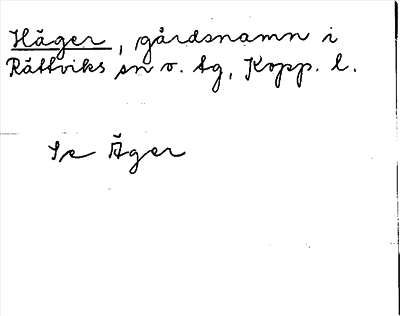 Häger, gårdsnamn i
Rättviks sn o. tg, Kopp. l.
Se Äger